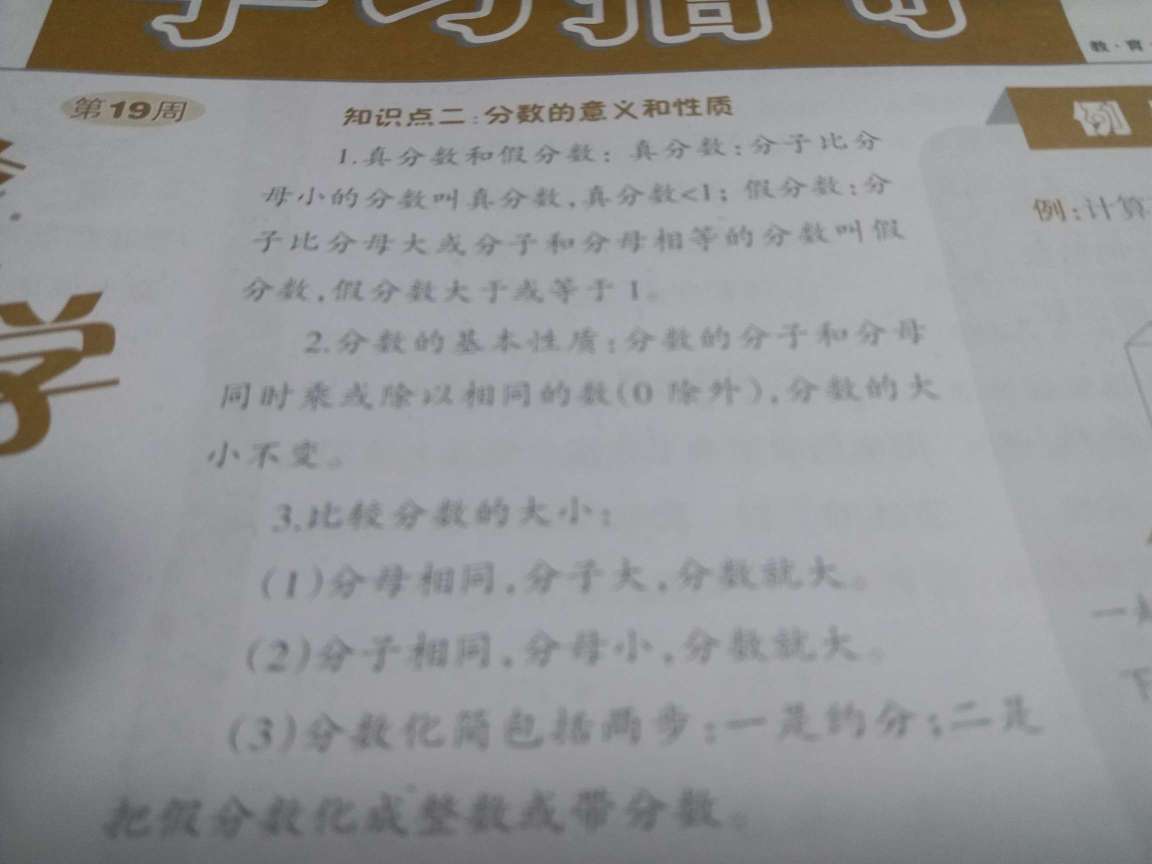 学习指导
教·育
第19周
知识点二:分数的意义和性质
1.真分数和假分数:真分数:分子比分
母小的分数叫真分数,真分数<1;假分数:分
子比分母大或分子和分母相等的分数叫假
分数,假分数大于或等于1。
2.分数的基本性质:分数的分子和分母
同时乘或除以相同的数(0除外),分数的大
小不变。
3.比较分数的大小:
(1)分母相同,分子大,分数就大。
(2)分子相同,分母小,分数就大。
(3)分数化简包括两步:一是约分;二是
把假分数化成整数或带分数。
学
例
例:计算
一
下